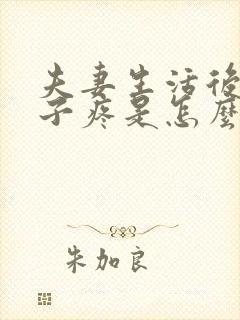 夫妻生活後
子疼是怎麼
朱加良